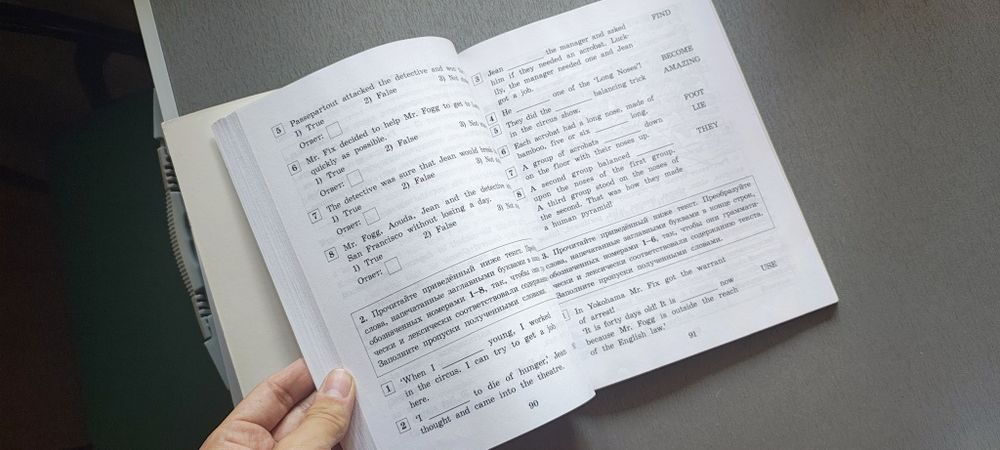 5 Passepartout attacked the detective and
1) True 2) False 3) Not
Ответ:
6 Mr. Fix decided to help Mr. Fogg to get to
quickly as possible.
1) True 2) False 3) Not
Ответ:
7 The detective was sure that Jean would
1) True 2) False 3) Not
Ответ:
8 Mr. Fogg, Aouda, Jean and the detective
San Francisco without losing a day.
1) True 2) False 3) Not
Ответ:
2. Прочитайте приведённый ниже текст.
слова, напечатанные заглавными буквами
обозначенных номерами 1–8, так, чтобы
чески и лексически соответствовали
Заполните пропуски полученными словами.
1 'When I ________ young, I worked
in the circus. I can try to get a job
here.
2 'I ________ to die of hunger,' Jean
thought and came into the theatre.
90
3 Jean ________ the manager and asked FIND
him if they needed an acrobat. Luck-
ily, the manager needed one and Jean
got a job.
4 He ________ one of the 'Long Noses'! BECOME
5 They did the ________ balancing trick AMAZING
in the circus show.
6 Each acrobat had a long nose, made of
bamboo, five or six ________ long. FOOT
7 A group of acrobats ________ down LIE
on the floor with their noses up.
8 A second group balanced ________ THEY
upon the noses of the first group.
A third group stood on the noses of
the second. That was how they made
a human pyramid!
3. Прочитайте приведённый ниже текст. Преобразуйте
слова, напечатанные заглавными буквами в конце строк,
обозначенных номерами 1–6, так, чтобы они граммати-
чески и лексически соответствовали содержанию текста.
Заполните пропуски полученными словами.
In Yokohama Mr. Fix got the warrant
of arrest!
'It is forty days old! It is ________ now USE
because Mr. Fogg is outside the reach
of the English law.'
91